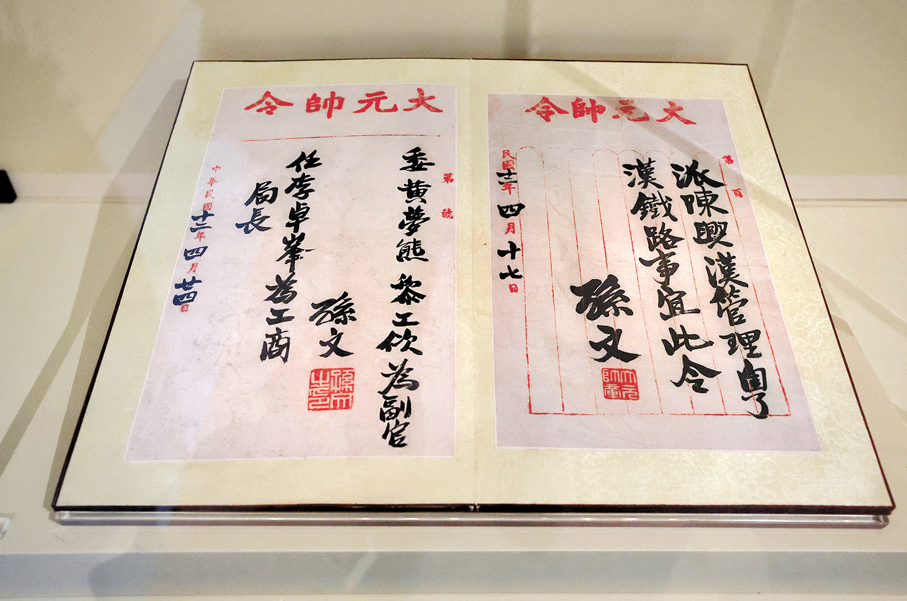 大元帥令
第 百
派陳興漢管理粵
漢鐵路事宜此令
孫文
民國十二年四月十七日
大元帥令
第 號
委黃夢熊 黎工佽為副官
任李卓峯為工商
局長
孫文
孫文之印
中華民國十二年四月廿四日